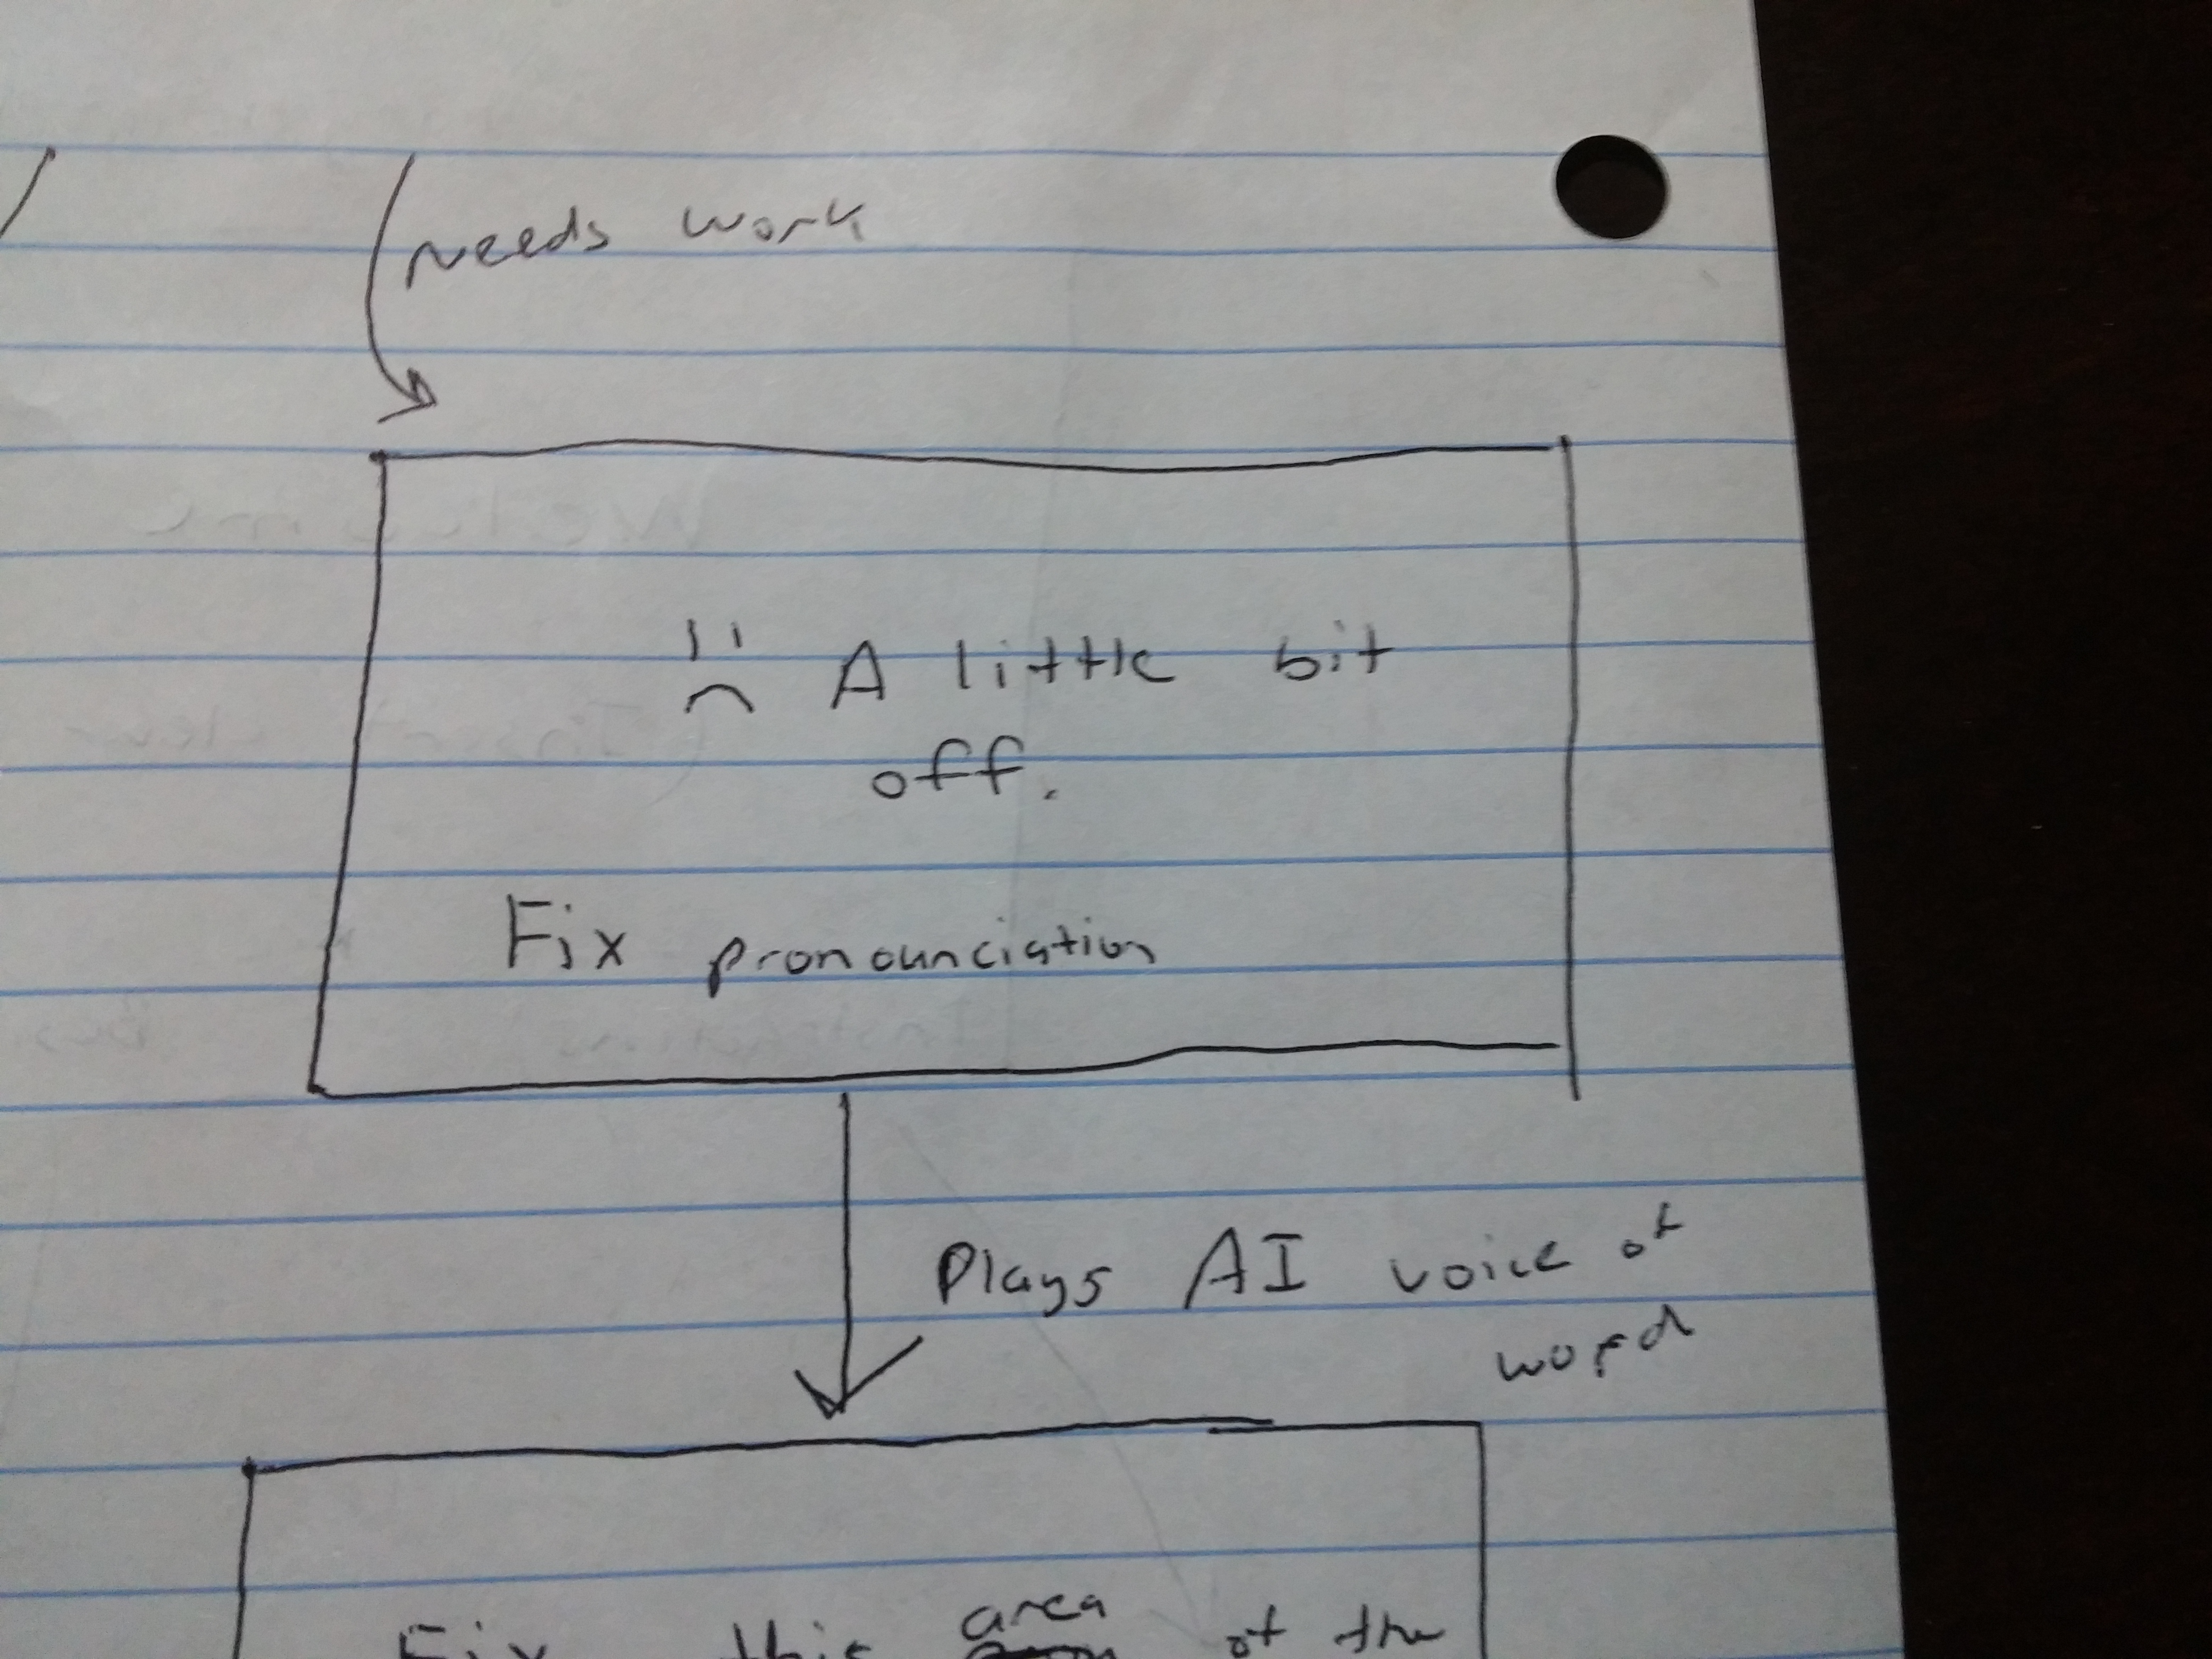 Needs work
A little bit
off.
Fix pronounciation
Plays AI voice of
word
area
Fix this of the